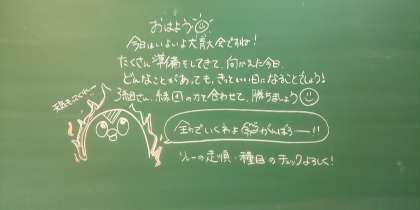 おはよう
今日はいよいよ大散会ですね！
たくさん準備をしてきて、向かえた今日、
どんなことがあっても、きっといい日になることでしょう！
3組さん、の力を合わせて、勝ちましょう
全力でいくわよ がんばろー!!
リレーの走順・種目のチェックよろしく！